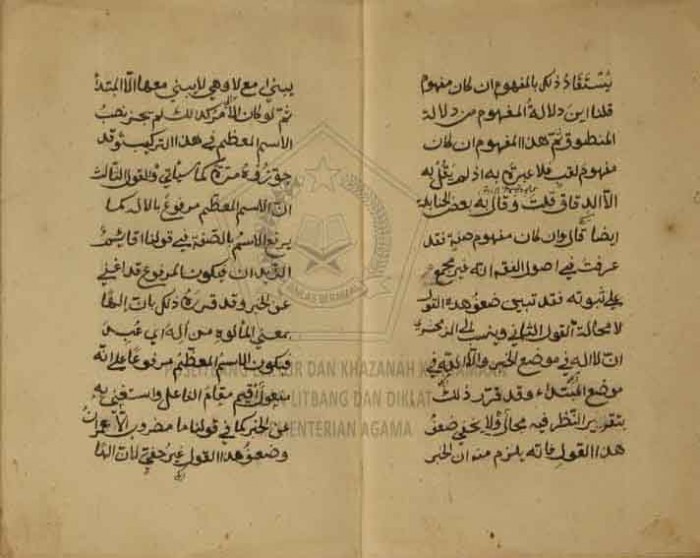 يستفاد ذلك بالمفهوم ان كان مفهوم
قلنا اين دلالة المفهوم من دلالة
المنطوق ثم هذا المفهوم ان كان
مفهوم لقب فلا عبرة به اذ لم يقل به
الا الدقاق قلت وقال به بعض الحنابلة
ايضا قال وان كان مفهوم صفة فقد
عرفت في اصول الفقه انه غير مجمع
على ثبوته فقد تبين ضعف هذا القول
لا محالة القول الثاني وينسب الى الزمخشري
ان لا اله في موضع الخبر والا الله في
موضع المبتداء وقد قرر ذلك
بتقرير النظر فيه مجال ولا يخفى ضعف
هذا القول فانه يلزم منه ان الخبر
يبنى مع لا وهي لا يبنى معها الا المبتدا
ثم لو كان الامر كذلك لم يجز نصب
الاسم المعظم في هذا التركيب وقد
جوزوه كما سياتي والقول الثالث
ان الاسم المعظم مرفوع بالاله كما
يرفع الاسم بالصفة في قولنا اقايم
الزيدان فيكون المرفوع قد اغنى
عن الخبر وقد قرر ذلك بان الها
بمعنى المألوه من اله اي عبد
فيكون الاسم المعظم مرفوعا على انه
مفعول اقيم مقام الفاعل واستغنى به
عن الخبر كما في قولنا ما مضروب الا العمران
وضعف هذا القول غير خفي لان الها
LITBANG DAN DIKLAT
KEMENTERIAN AGAMA